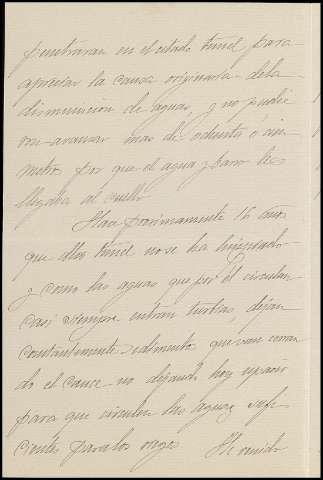 penetraran en el citado tunel para
apreciar la causa originaria de la
disminucion de aguas, y no pudie
ron avanzar mas de ochenta ó cien
metros, por que el agua y barro les
llegaba al cuello.
Hace proximamente 16 años
que dho tunel no se ha limpiado
y como las aguas que por él circulan
casi siempre entran turbias, dejan
constantemente sedimentos que van cerran
do el cauce no dejando hoy espacio
para que circulen las aguas sufi
cientes para los riegos He venido